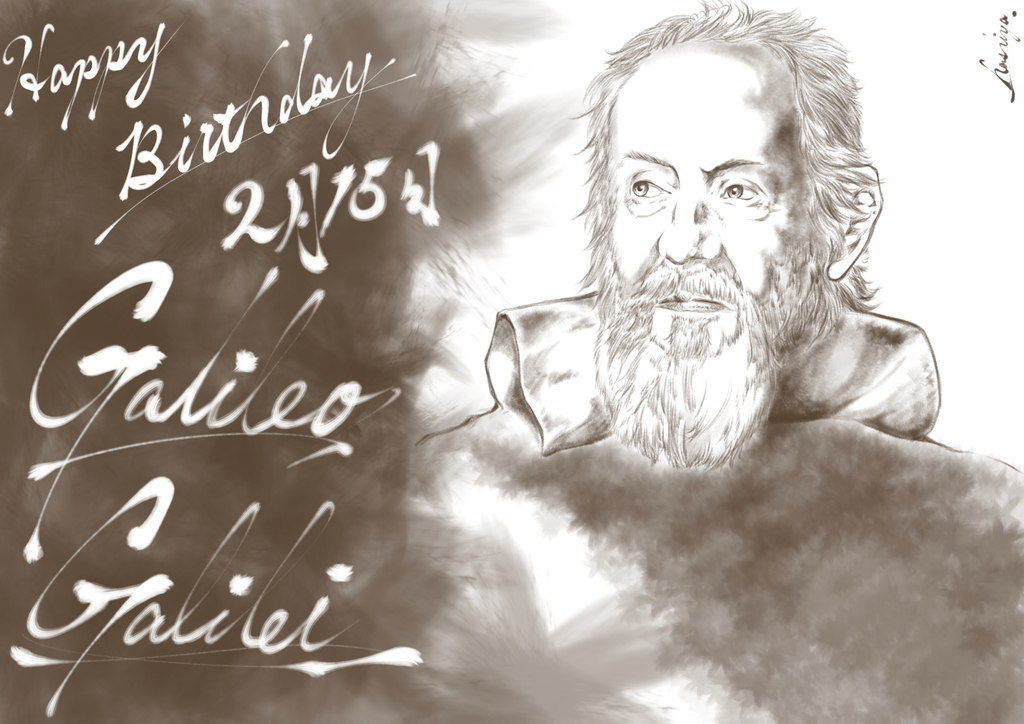 Happy
Birthday
2月15日
Galileo
Galilei